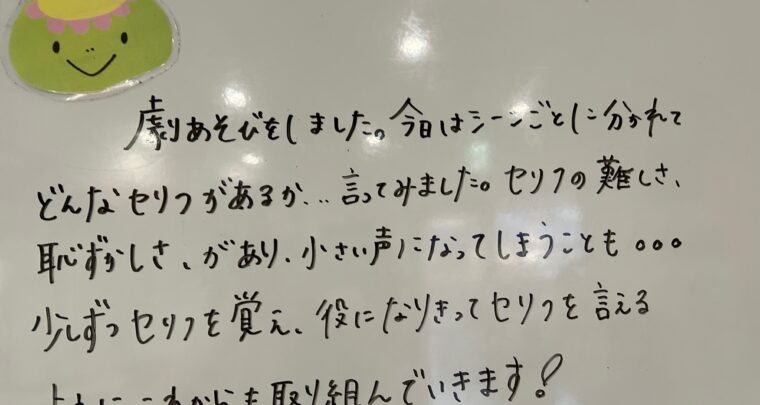 劇あそびをしました。今日はシーンごとに分かれて
どんなセリフがあるか... 言ってみました。セリフの難しさ、
恥ずかしさ、があり、小さい声になってしまうことも。。。
少しずつセリフを覚え、役になりきってセリフを言える
ようにこれからも取り組んでいきます!